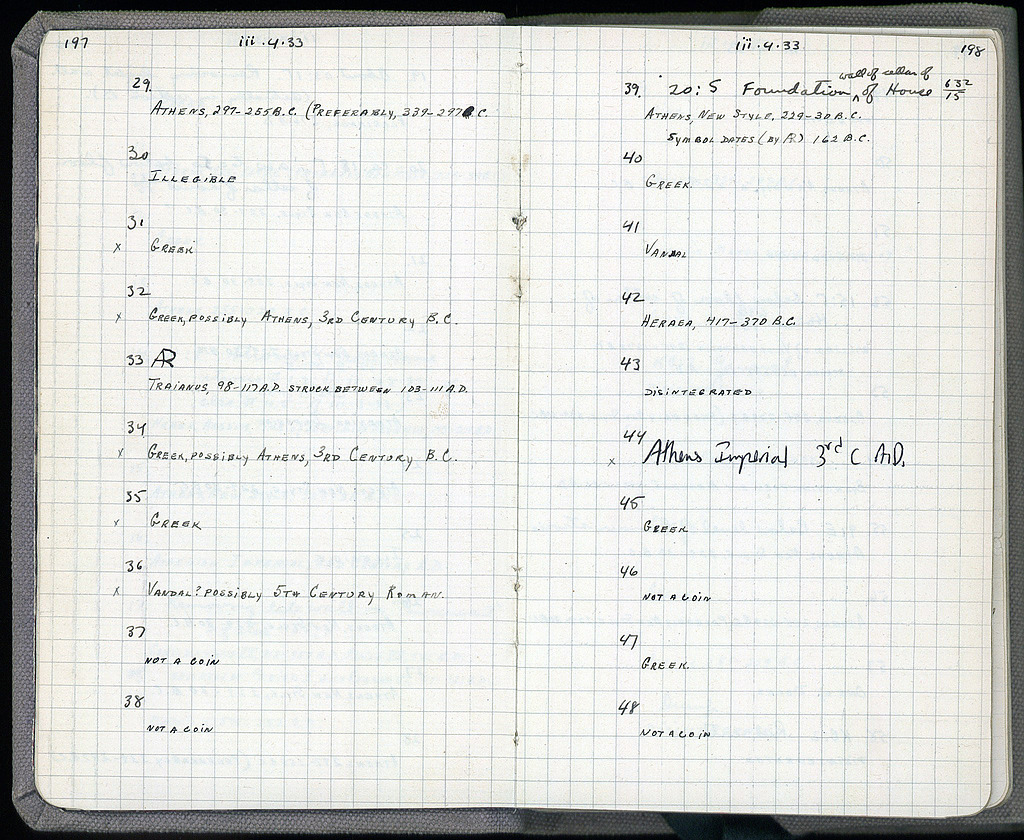 197
iii.4.33
29.
ATHENS, 297-255 B.C. (PREFERABLY, 339-297 B.C.
30
ILLEGIBLE
31
x GREEK
32
x GREEK, POSSIBLY ATHENS, 3RD CENTURY B.C.
33 AR
TRAIANUS, 98-117 A.D. STRUCK BETWEEN 103-111 A.D.
34
x GREEK, POSSIBLY ATHENS, 3RD CENTURY B.C.
35
x GREEK
36
x VANDAL? POSSIBLY 5TH CENTURY ROMAN.
37
NOT A COIN
38
NOT A COIN
iii.4.33
198
wall of cellar of
39. 20:5 Foundation ^ of House 632/15
ATHENS, NEW STYLE, 229-30 B.C.
SYMBOL DATES (BY R) 162 B.C.
40
GREEK.
41
VANDAL
42
HERAEA, 417-370 B.C.
43
DISINTEGRATED
44
x Athens Imperial 3rd C A.D.
45
GREEK
46
NOT A COIN
47
GREEK.
48
NOT A COIN